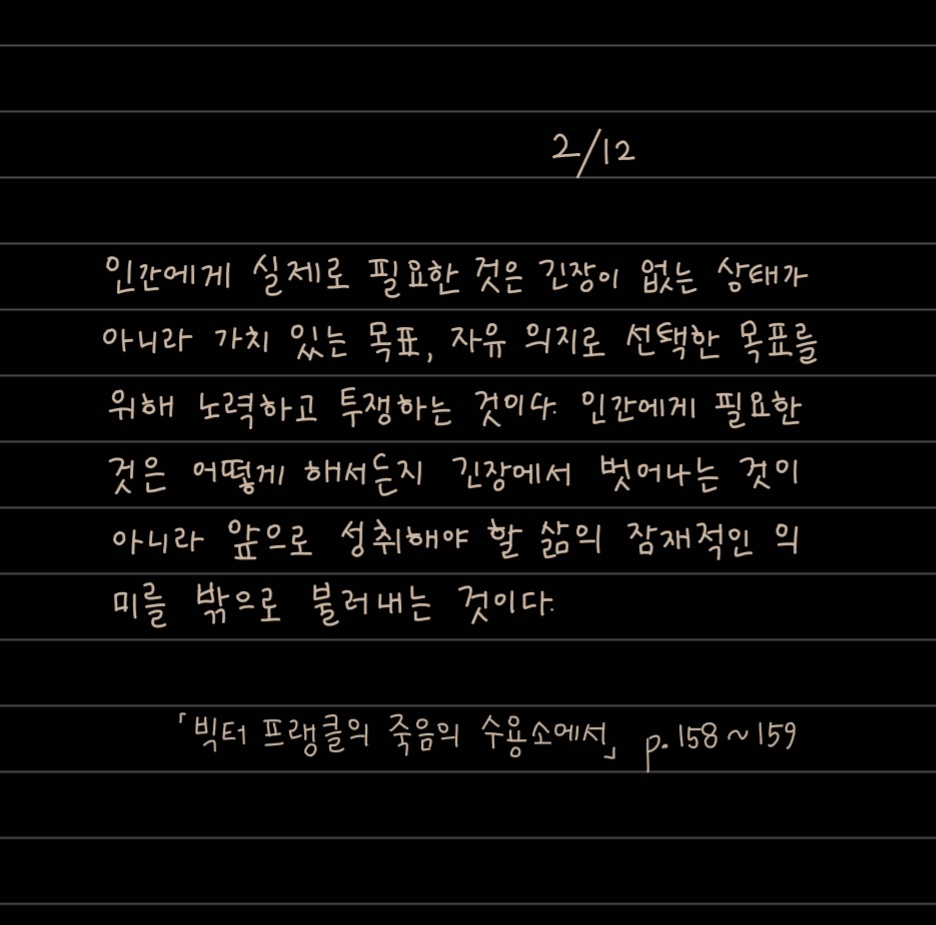 2/12
인간에게 실제로 필요한 것은 긴장이 없는 상태가
아니라 가치 있는 목표, 자유 의지로 선택한 목표를
위해 노력하고 투쟁하는 것이다. 인간에게 필요한
것은 어떻게 해서든지 긴장에서 벗어나는 것이
아니라 앞으로 성취해야 할 삶의 잠재적인 의
미를 밖으로 불러내는 것이다.
「빅터 프랭클의 죽음의 수용소에서」 p. 158~159